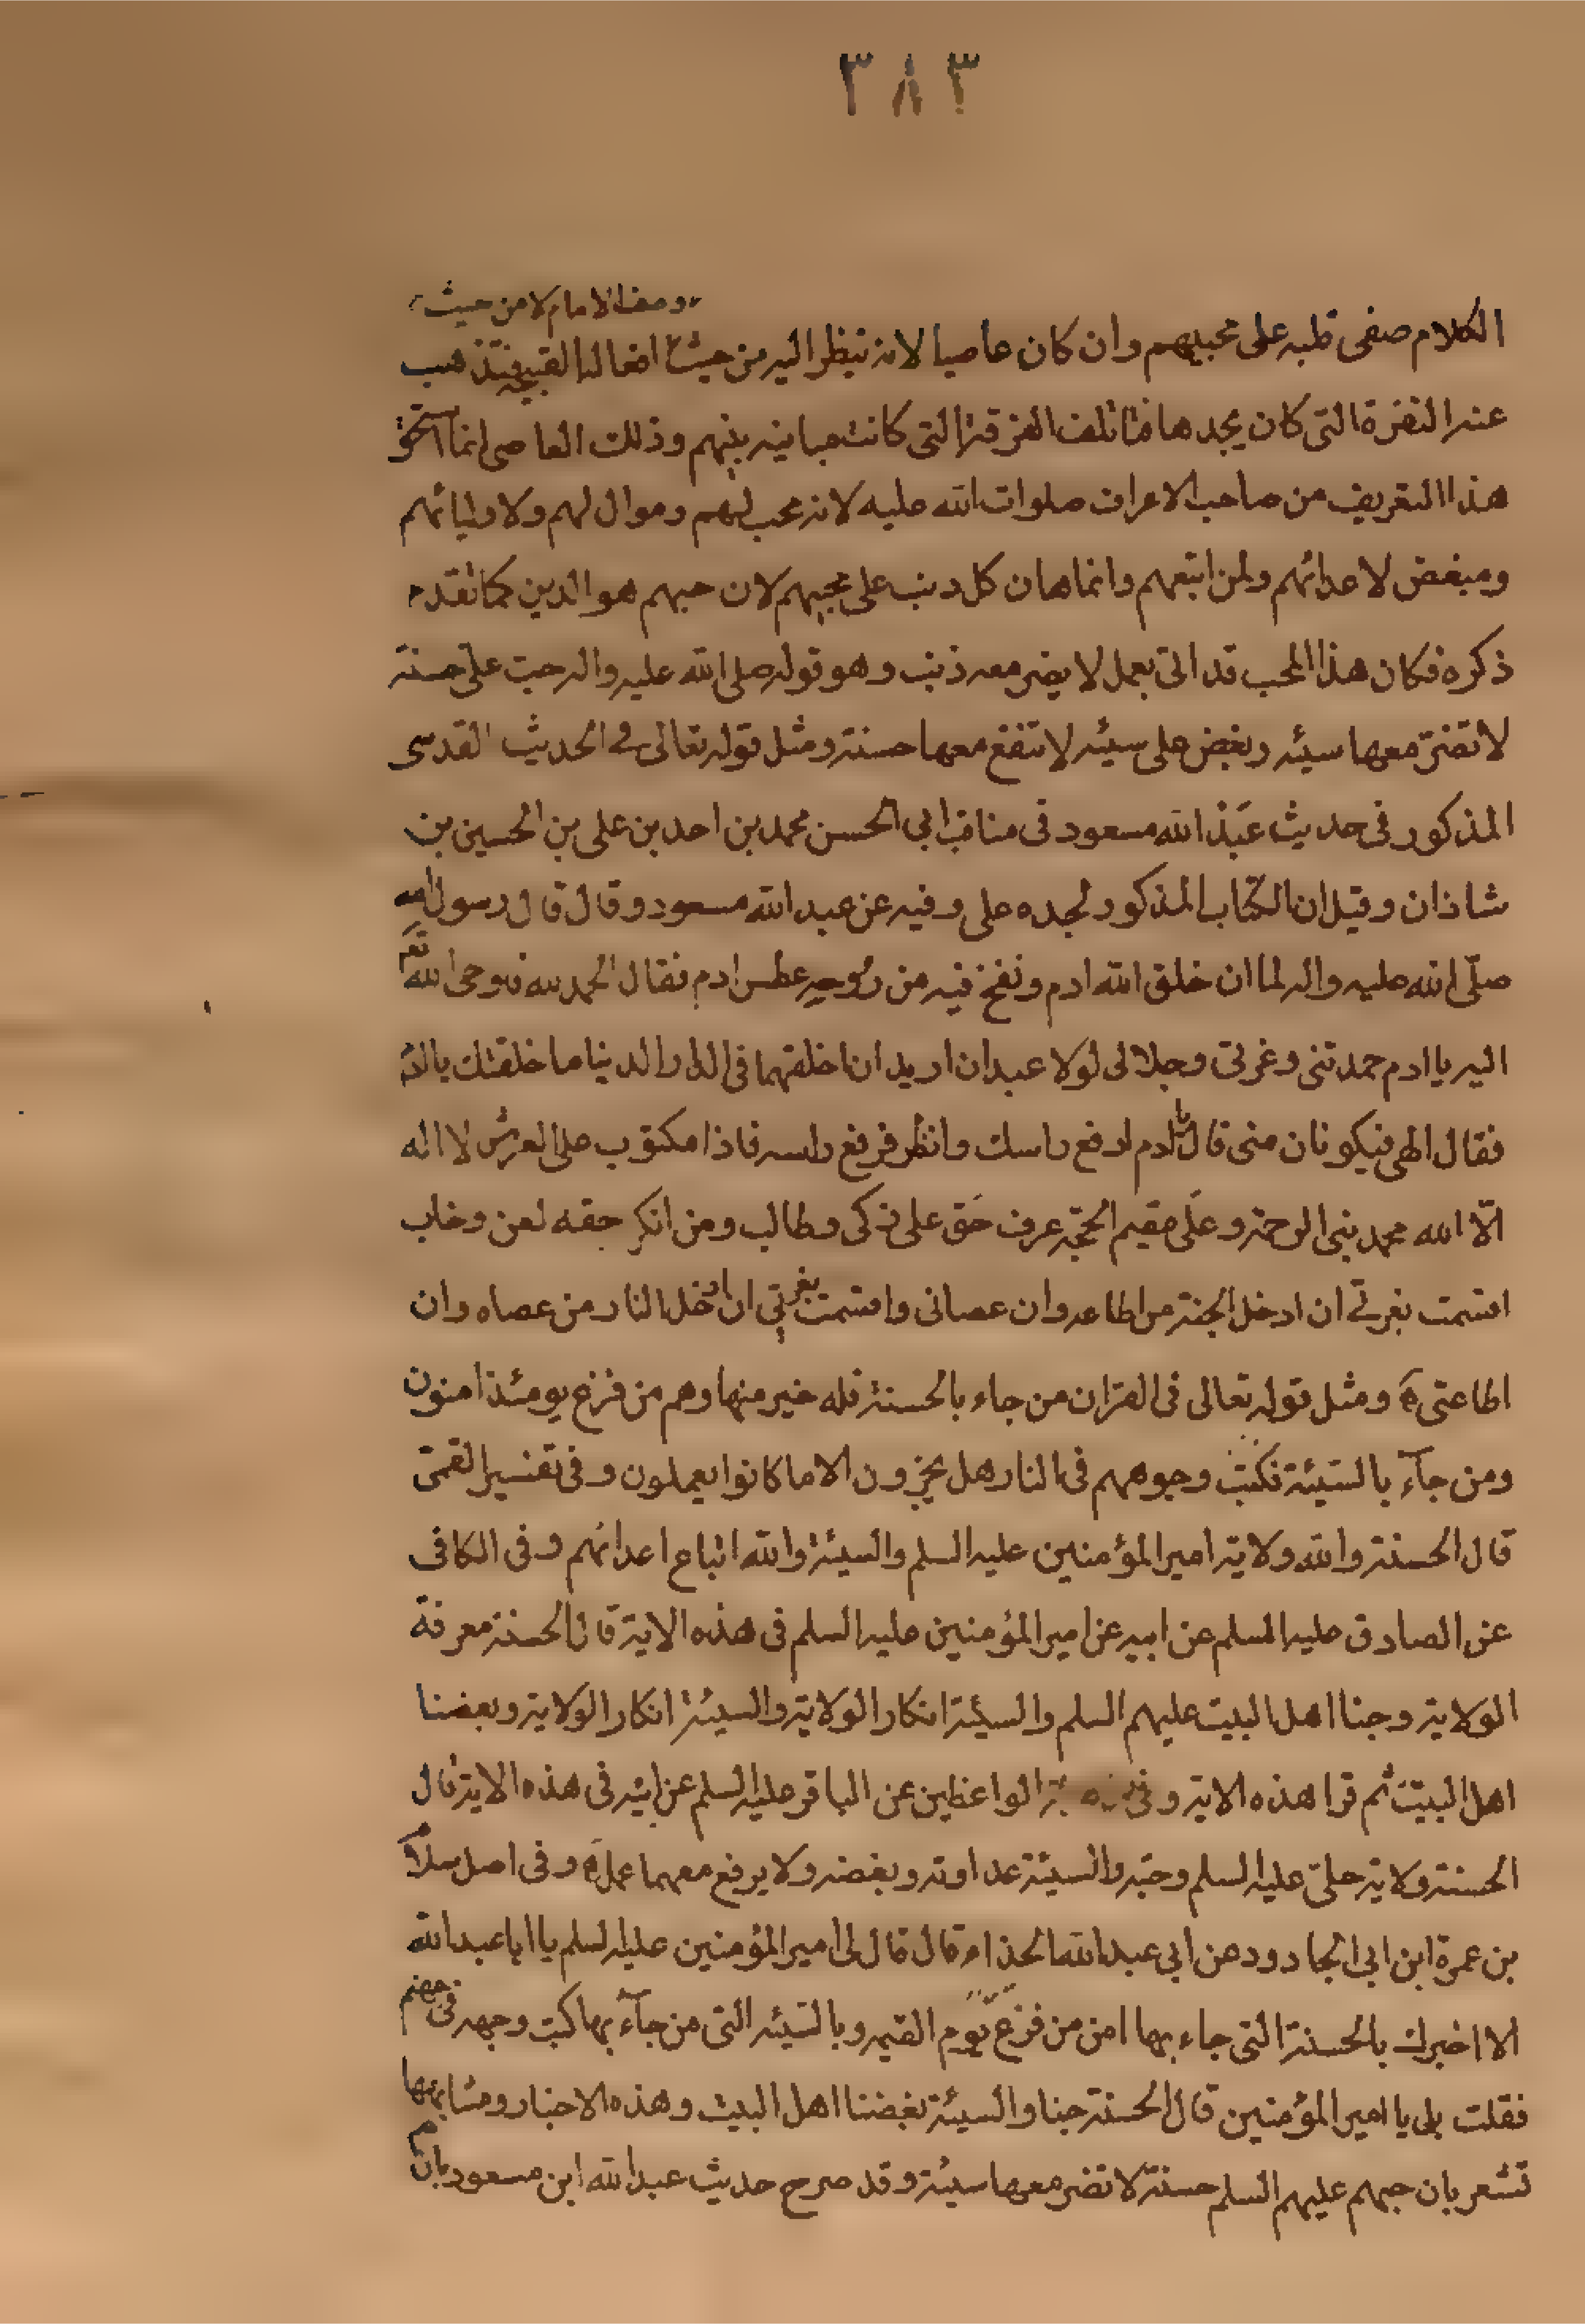 ٣٨٣
ومعنا الامام لا من حيث
الكلام صفى قلبه على محبيهم وان كان عاصيا لانه ينظر اليه من حيث افعالنا القبيحة فتذهب
عنه النفرة التى كان يجدها فتألف الفرقة التى كانت مباينه بينهم وذلك العاصى انما استحق
هذا التعريف من صاحب الاعراف صلوات الله عليه لانه محب لهم وموال لهم ولاوليائهم
ومبغض لاعدائهم ولمن اتبعهم وانما هان كل ذنب على محبيهم لان حبهم هو الدين كما تقدم
ذكره فكان هذا المحب قد اتى بعمل لا يضر معه ذنب وهو قوله صلى الله عليه واله حب على حسنة
لا تضر معها سيئه وبغض على سيئه لا تنفع معها حسنة ومثل قوله تعالى فى الحديث القدسى
المذكور فى حديث عبد الله مسعود فى مناقب ابى الحسن محمد بن احمد بن على بن الحسين بن
شاذان وقيل ان الكتاب المذكور لجده على وفيه عن عبد الله مسعود وقال قال رسول الله
صلى الله عليه واله لما ان خلق الله ادم ونفخ فيه من روحه عطس ادم فقال الحمد لله فاوحى الله تع
اليه يا ادم حمدتنى وعزتى وجلالى لولا عبدان اريد ان اخلقهما فى الدار الدنيا ما خلقتك يا ادم
فقال الهى فيكونان منى قال يا ادم ارفع راسك وانظر فرفع راسه فاذا مكتوب على العرش لا اله
الا الله محمد نبى الرحمة وعلى مقيم الحجة عرف حق على زكى وطالب ومن انكر حقه لعن وخاب
اقسمت بعزتى ان ادخل الجنة من اطاعه وان عصانى واقسمت بعزتى ان ادخل النار من عصاه وان
اطاعنى ه ومثل قوله تعالى فى القران من جاء بالحسنة فله خير منها وهم من فزع يومئذ امنون
ومن جآء بالسيئة فكبت وجوههم فى النار هل يجزون الا ما كانوا يعملون وفى تفسير القمى
قال الحسنة والله ولاية امير المؤمنين عليه السلم والسيئة والله اتباع اعدائهم وفى الكافى
عن الصادق عليه السلم عن ابيه عن امير المؤمنين عليه السلم فى هذه الاية قال الحسنة معرفة
الولاية وحبنا اهل البيت عليهم السلم والسيئة انكار الولاية والسيئة انكار الولاية وبغضنا
اهل البيت ثم قرا هذه الاية وفى الواعظين عن الباقر عليه السلم عن ابيه فى هذه الاية قال
الحسنة ولاية على عليه السلم وحبه والسيئة عداوته وبغضه ولا يرفع معهما عمل ه وفى اصل سلام
بن عمرة ابن ابى الجارود عن ابى عبد الله الحذاء قال قال لى امير المؤمنين عليه السلم يا ابا عبد الله
الا اخبرك بالحسنة التى جاء بها امن من فزع يوم القيمه وبالسيئه التى من جآء بها كبت وجهه فى جهنم
فقلت بلى يا امير المؤمنين قال الحسنة حبنا والسيئة بغضنا اهل البيت وهذه الاخبار ومشابهها
تشعر بان حبهم عليهم السلم حسنة لا تضر معها سيئة وقد صرح حديث عبد الله ابن مسعود بان